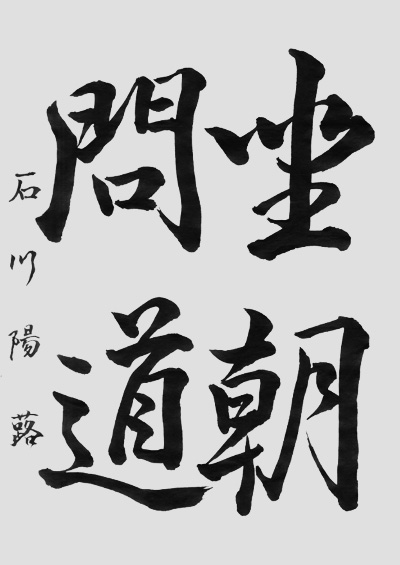 坐朝
問道
石川陽蕗